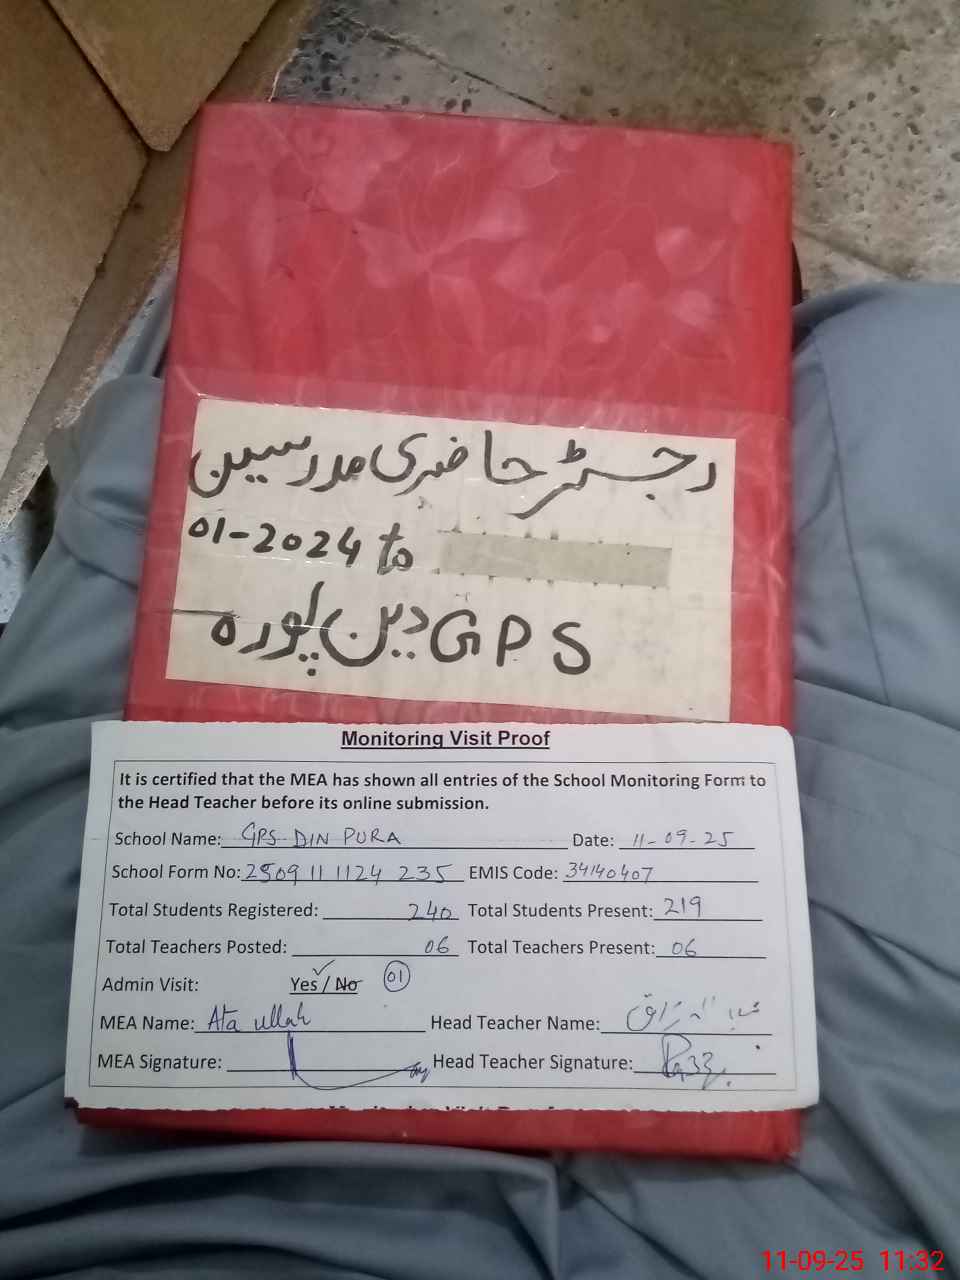 رجسٹر حاضری مدرسین
01-2024 to
GPS دین پورہ
Monitoring Visit Proof
It is certified that the MEA has shown all entries of the School Monitoring Form to
the Head Teacher before its online submission.
School Name: GPS DIN PURA Date: 11-09-25
School Form No: 2509 11 1124 235 EMIS Code: 34140407
Total Students Registered: 240 Total Students Present: 219
Total Teachers Posted: 06 Total Teachers Present: 06
Admin Visit: Yes / No 01
MEA Name: Ata ullah Head Teacher Name:
MEA Signature: Head Teacher Signature:
11-09-25 11:32